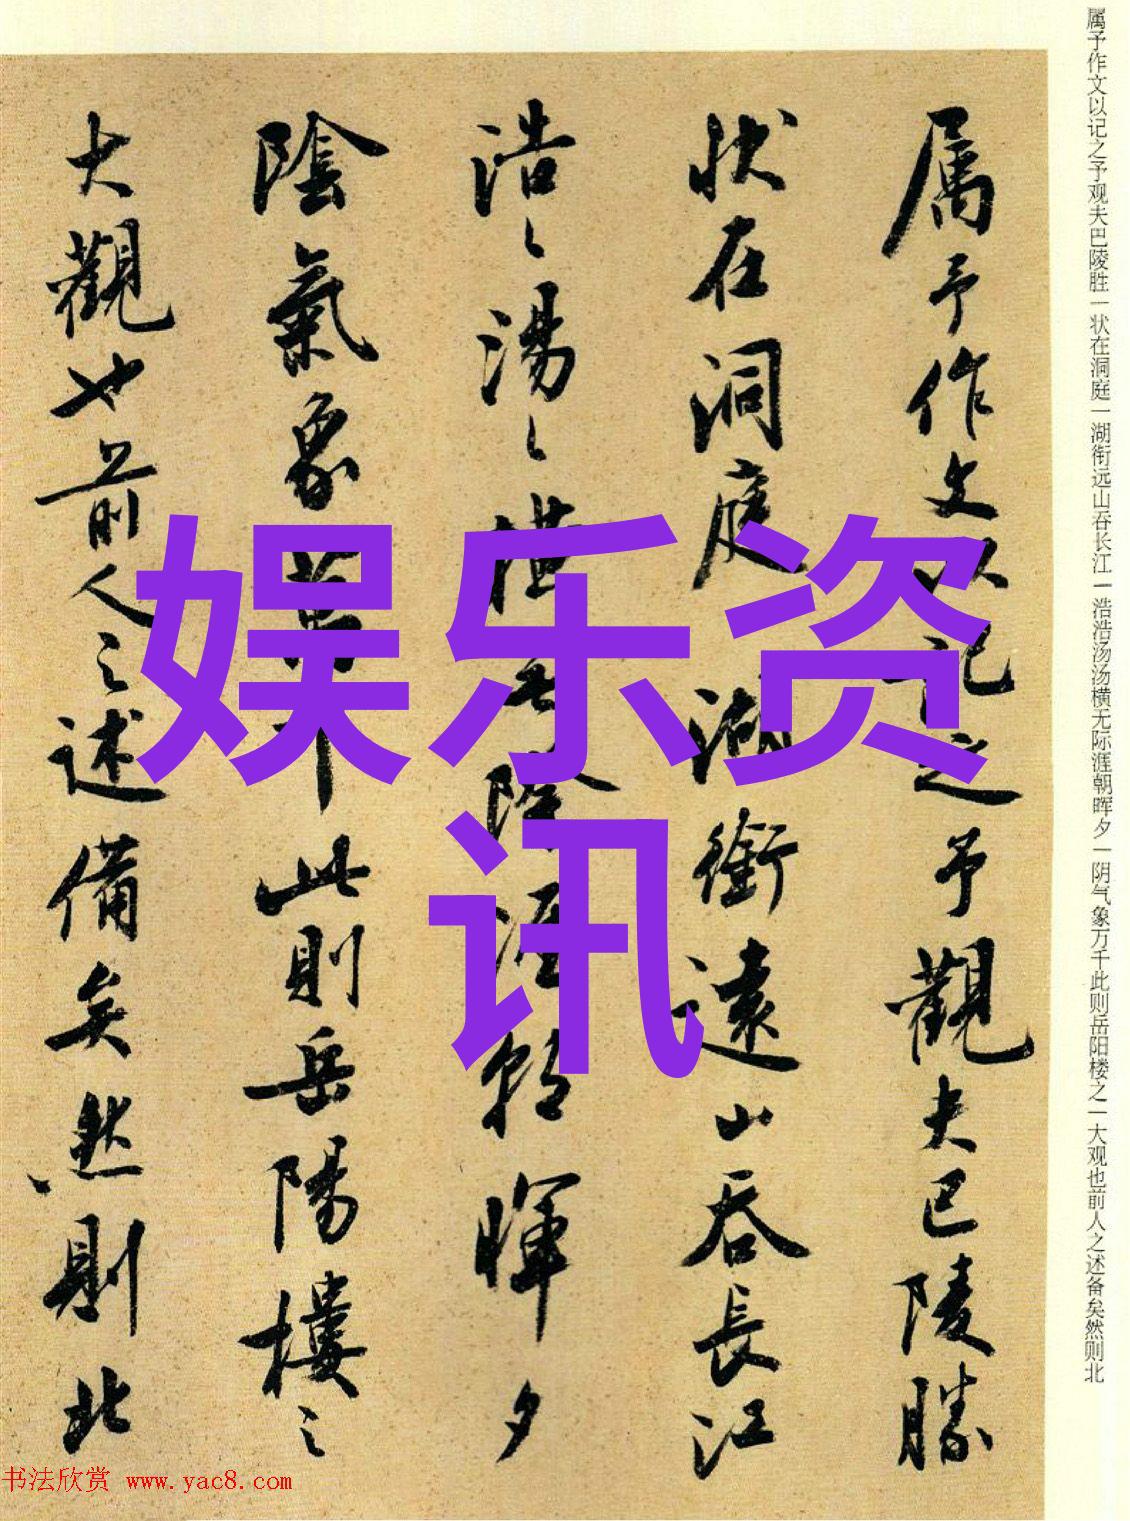 属予作文以记之予观夫巴陵胜一状在洞庭一湖衔远山吞长江一浩浩汤汤横无际涯朝晖夕一阴气象万千此则岳阳楼之一大观也前人之述备矣然则北
属予作文以记之予觀夫巴陵勝
状在洞庭湖銜遠山吞長江
浩〻湯〻横无際涯朝暉夕
陰氣象萬千此則岳陽樓之
大觀也前人之述備矣然則北
娱乐资
讯
书法欣赏 www.yac8.com